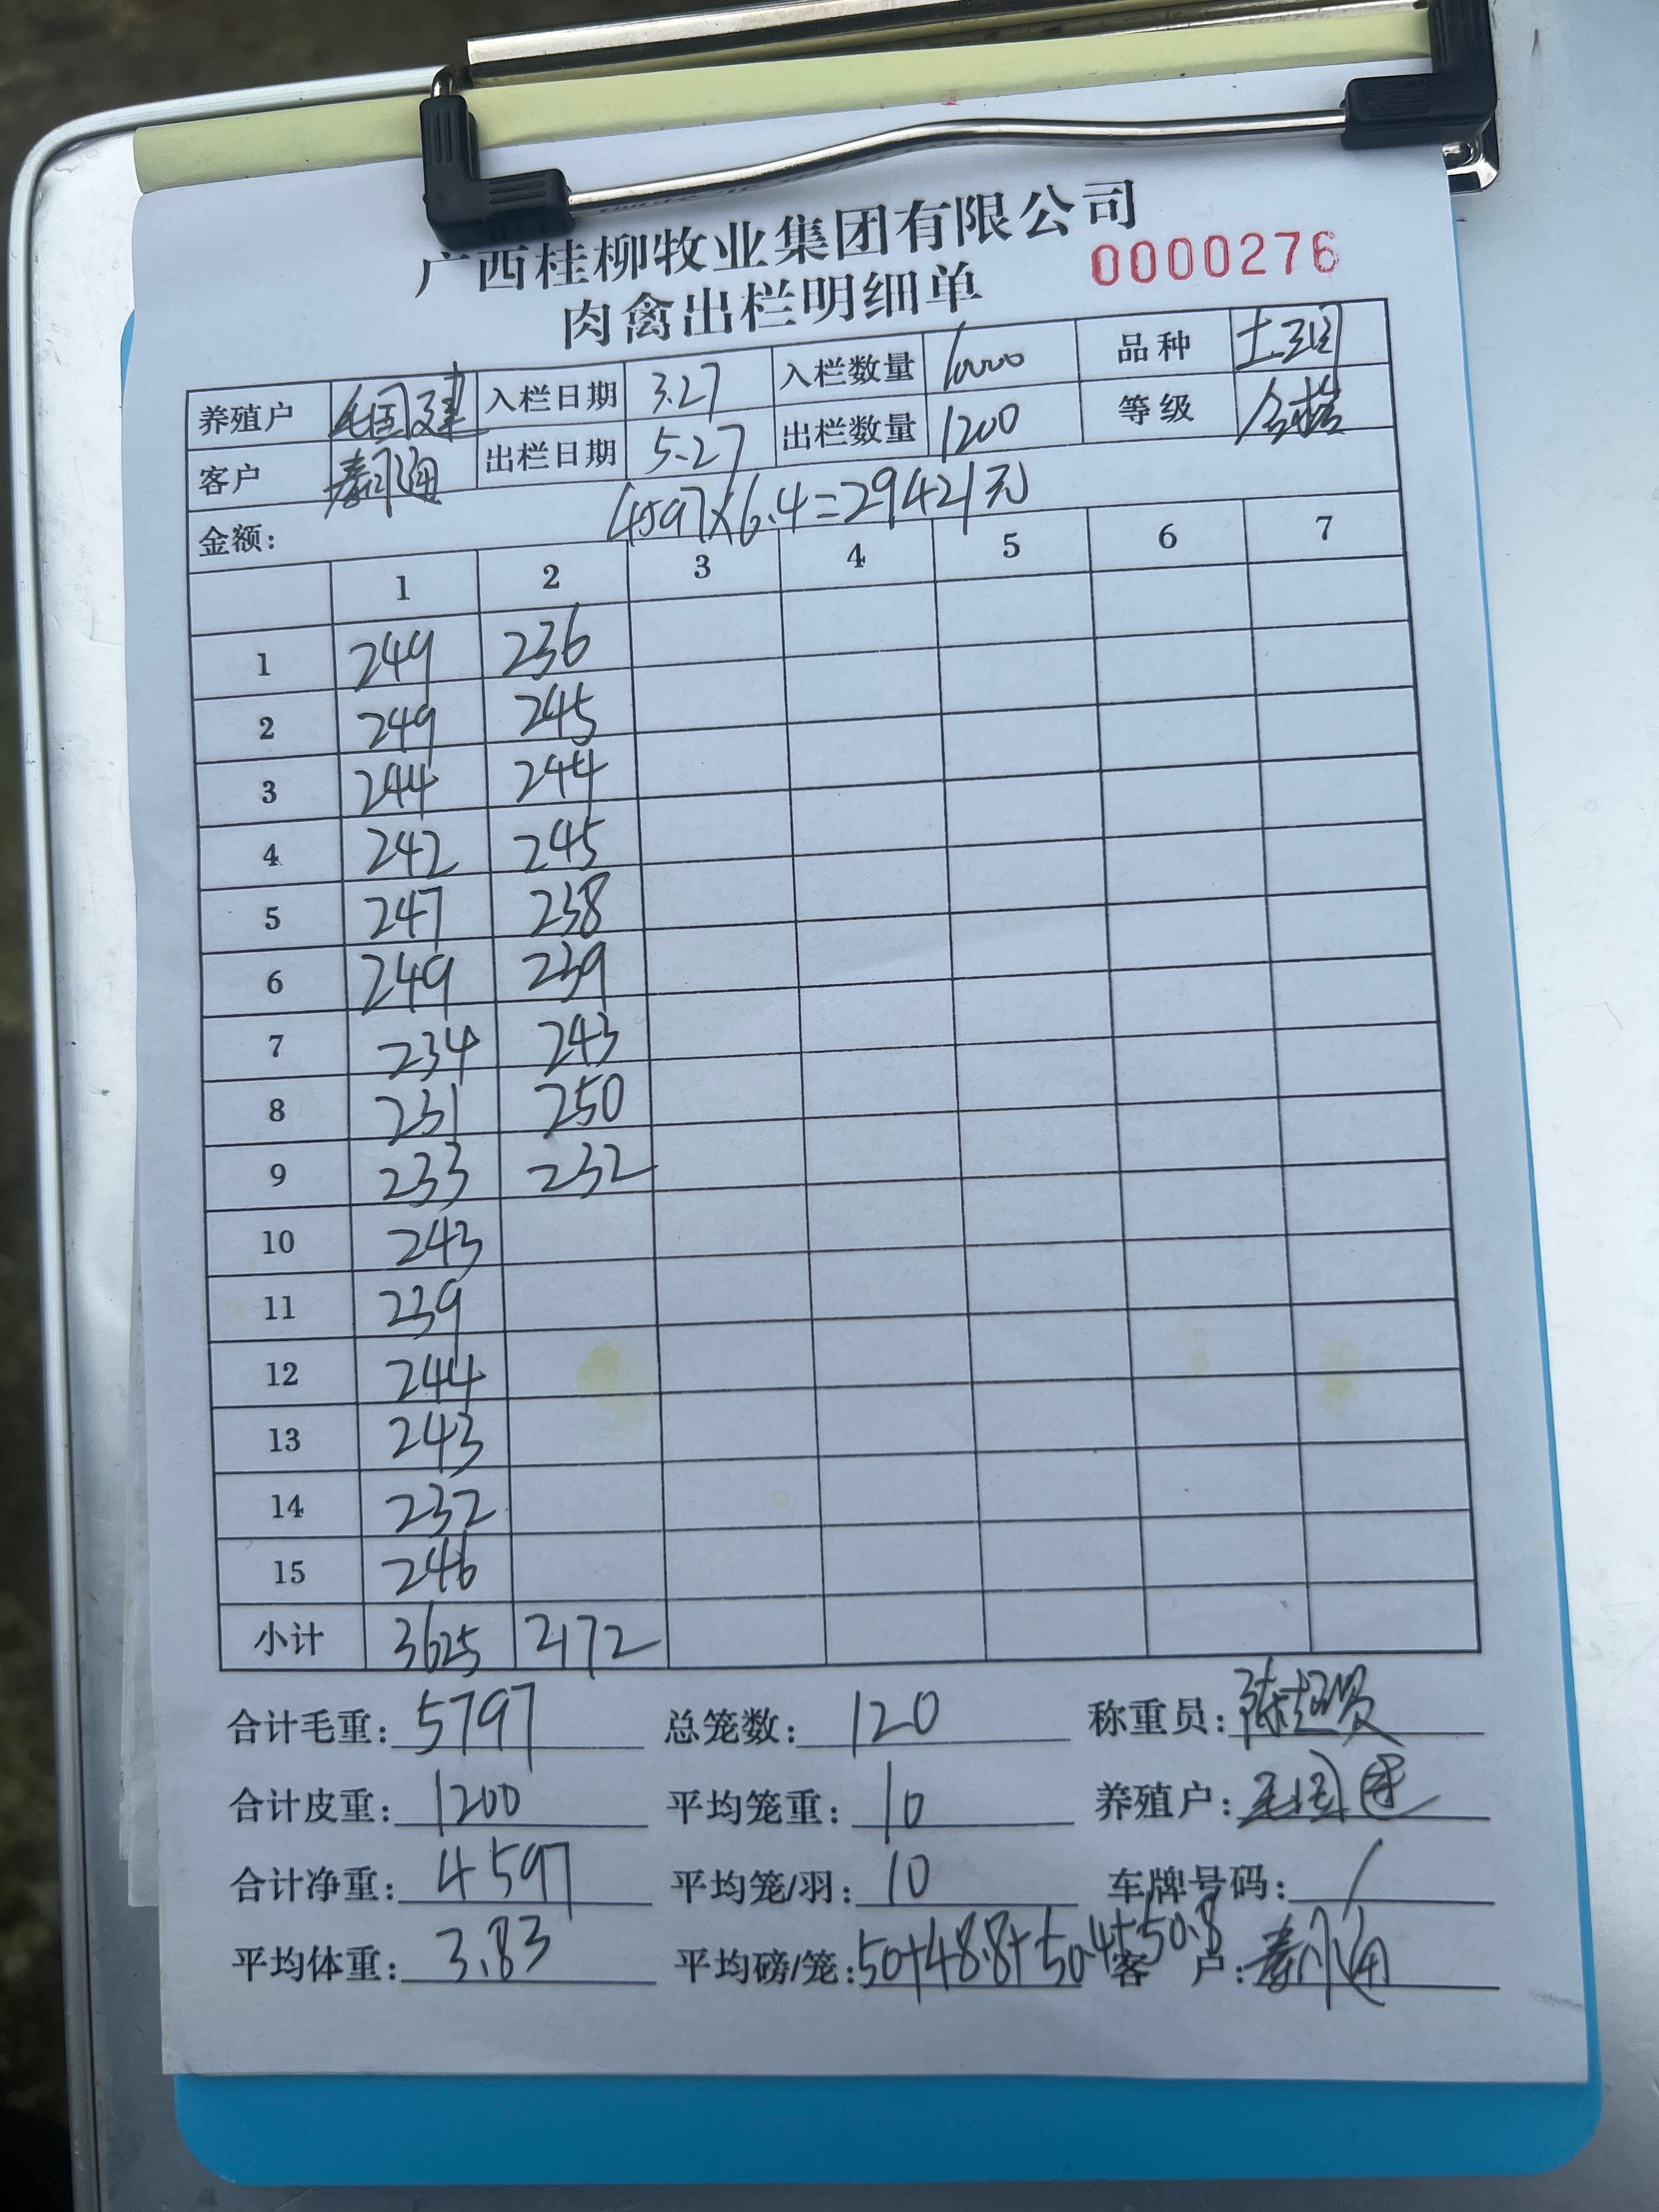 广西桂柳牧业集团有限公司
肉禽出栏明细单 0000276
养殖户 毛国建 入栏日期 3.27 入栏数量 10000 品种 土
客户 秦 出栏日期 5.27 出栏数量 1200 等级 合格
金额: 4597×6.4=29421元
1 2 3 4 5 6 7
1 249 236
2 249 245
3 244 244
4 242 245
5 247 238
6 249 239
7 234 243
8 231 250
9 233 232
10 243
11 239
12 244
13 243
14 232
15 246
小计 3625 2172
合计毛重: 5797 总笼数: 120 称重员: 陈超
合计皮重: 1200 平均笼重: 10 养殖户: 毛国建
合计净重: 4597 平均笼/羽: 10 车牌号码: /
平均体重: 3.83 平均磅/笼: 50+48.8+50.4+50.8 客户: 秦